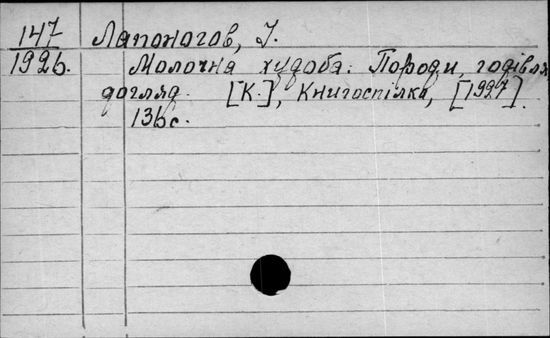 147 Лапоногов, І.
1926. Молочна худоба: Породи, годівля,
догляд. [К.], Книгоспілка, [1927].
136 с.